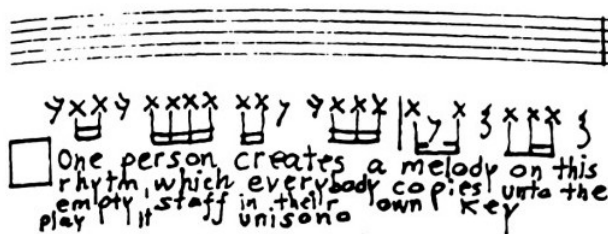 One person creates a melody on this
rhytm, which everybody copies unto the
empty staff in their own key
play it unisono